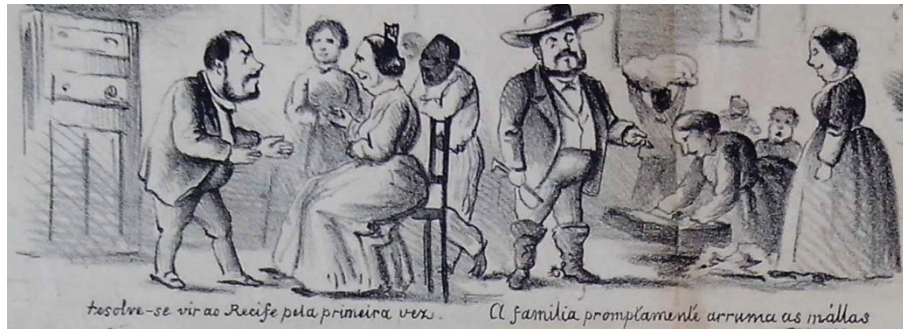 resolve-se vir ao Recife pela primeira vez.
A familia promptamente arruma as mállas